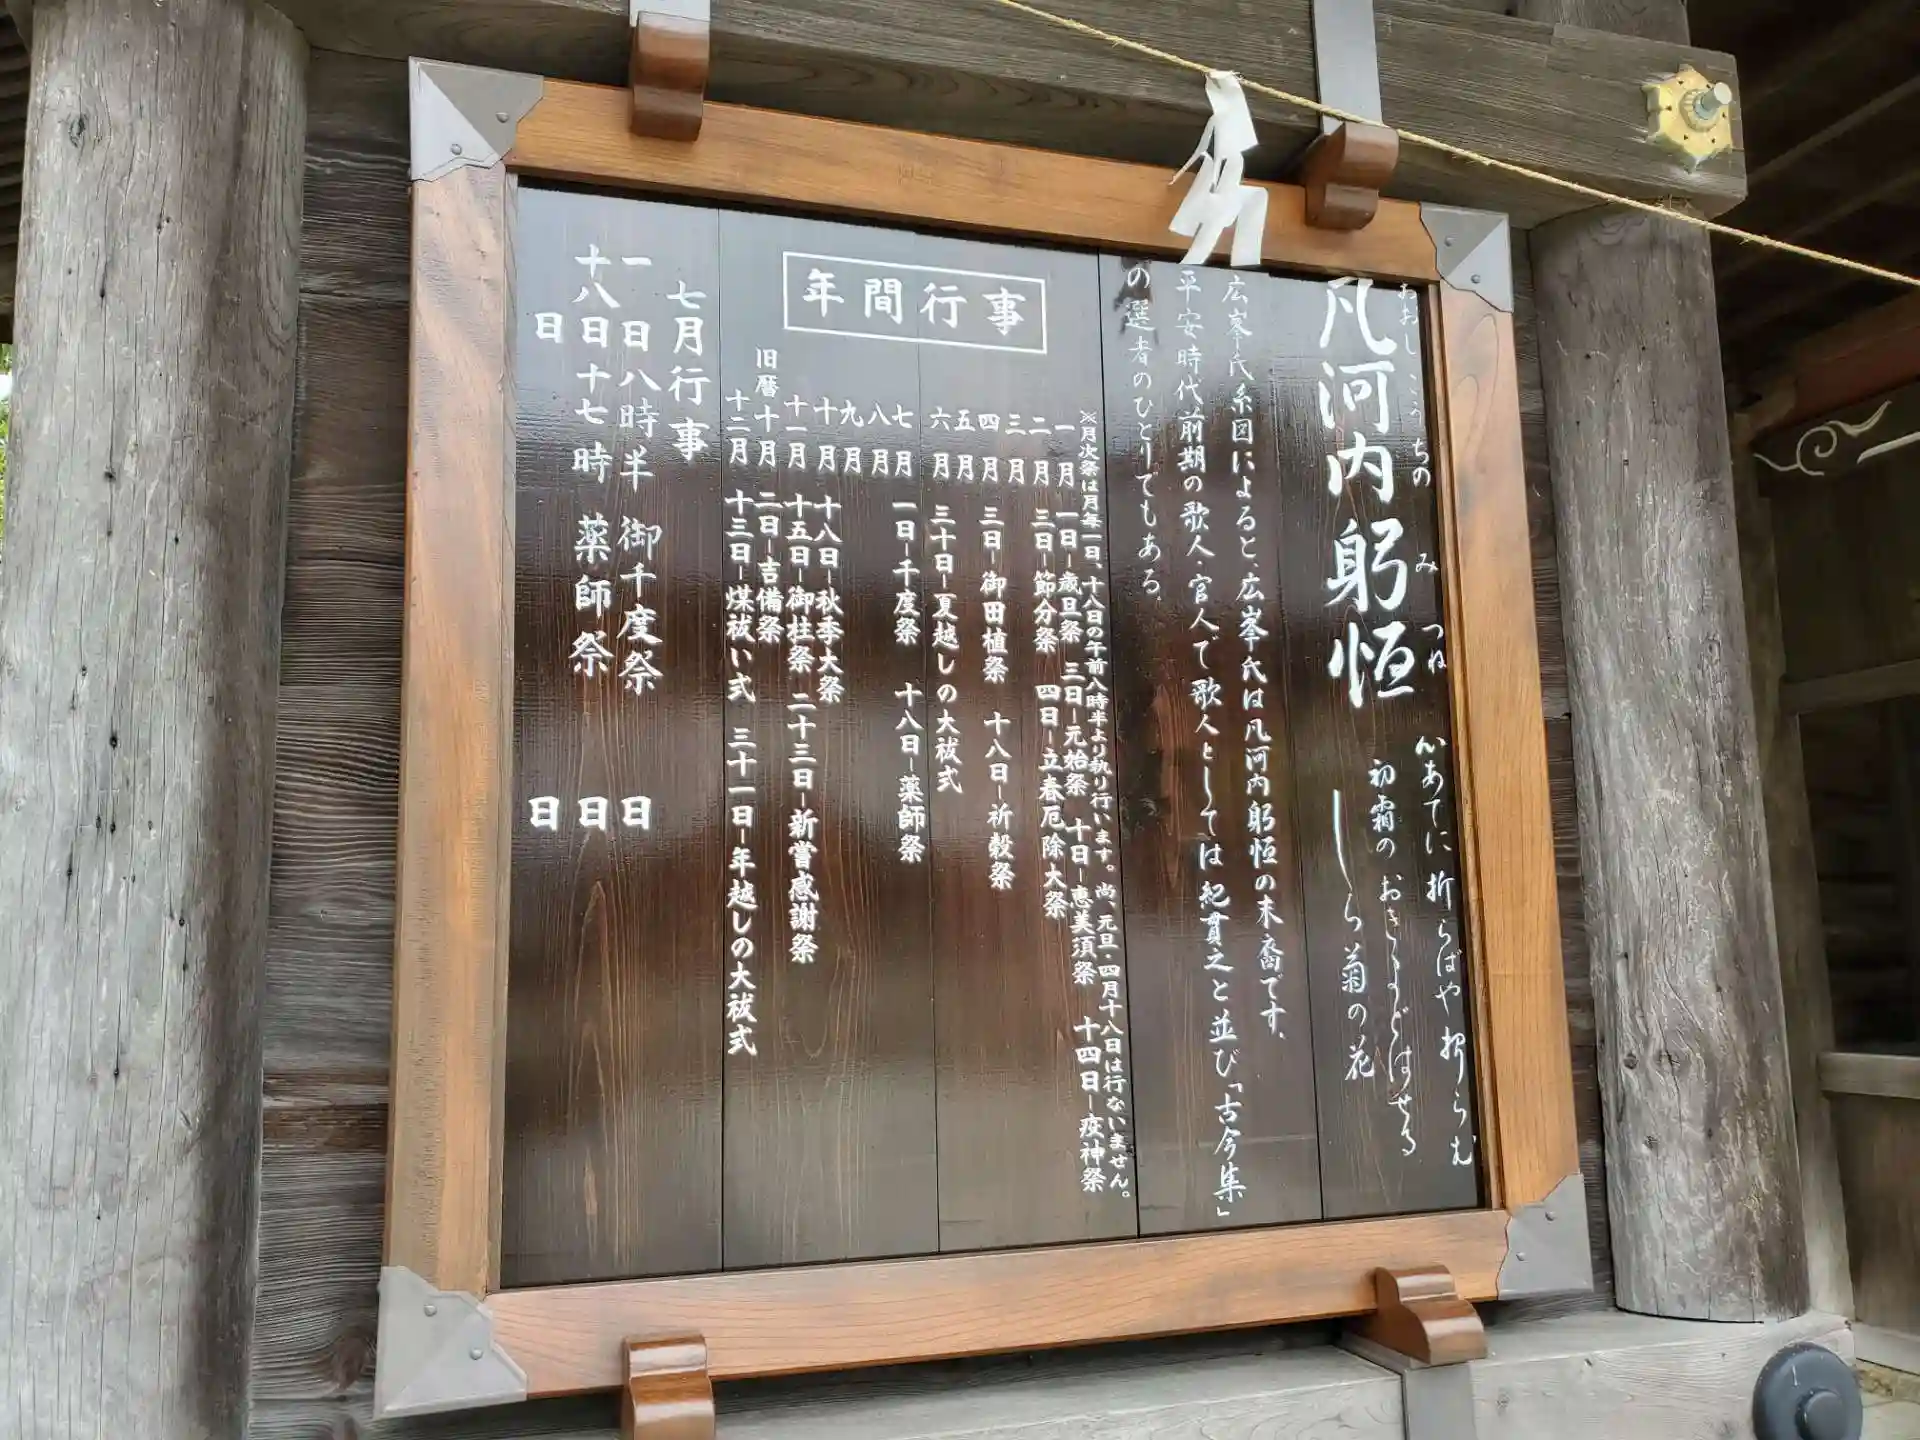 凡河内躬恒
おおしこうちのみつね
心あてに折らばや折らむ
初霜のおきまどはせる
しら菊の花
広峯氏系図によると、広峯氏は凡河内躬恒の末裔です。
平安時代前期の歌人・官人で歌人としては紀貫之と並び「古今集」
の選者のひとりでもある。
年間行事
※月次祭は月毎一日、十八日の午前八時半より執り行います。尚、元旦・四月十八日は行ないません。
一月 一日－歳旦祭 三日－元始祭 十日－恵美須祭 十四日－疫神祭
二月 三日－節分祭 四日－立春厄除大祭
三月
四月 三日－御田植祭 十八日－祈穀祭
五月
六月 三十日－夏越しの大祓式
七月 一日－千度祭 十八日－薬師祭
八月
九月
十月 十八日－秋季大祭
十一月 十五日－御柱祭 二十三日－新嘗感謝祭
旧暦十月 二日－吉備祭
十二月 十三日－煤祓い式 三十一日－年越しの大祓式
七月行事
一日八時半 御千度祭 日
十八日十七時 薬師祭 日
日 日